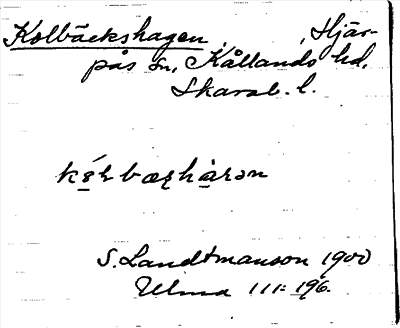 Kolbäckshagen, Hjär-
pås sn, Kållands hd,
Skarab. l.
S. Landtmanson 1900
Ulma 111:196.